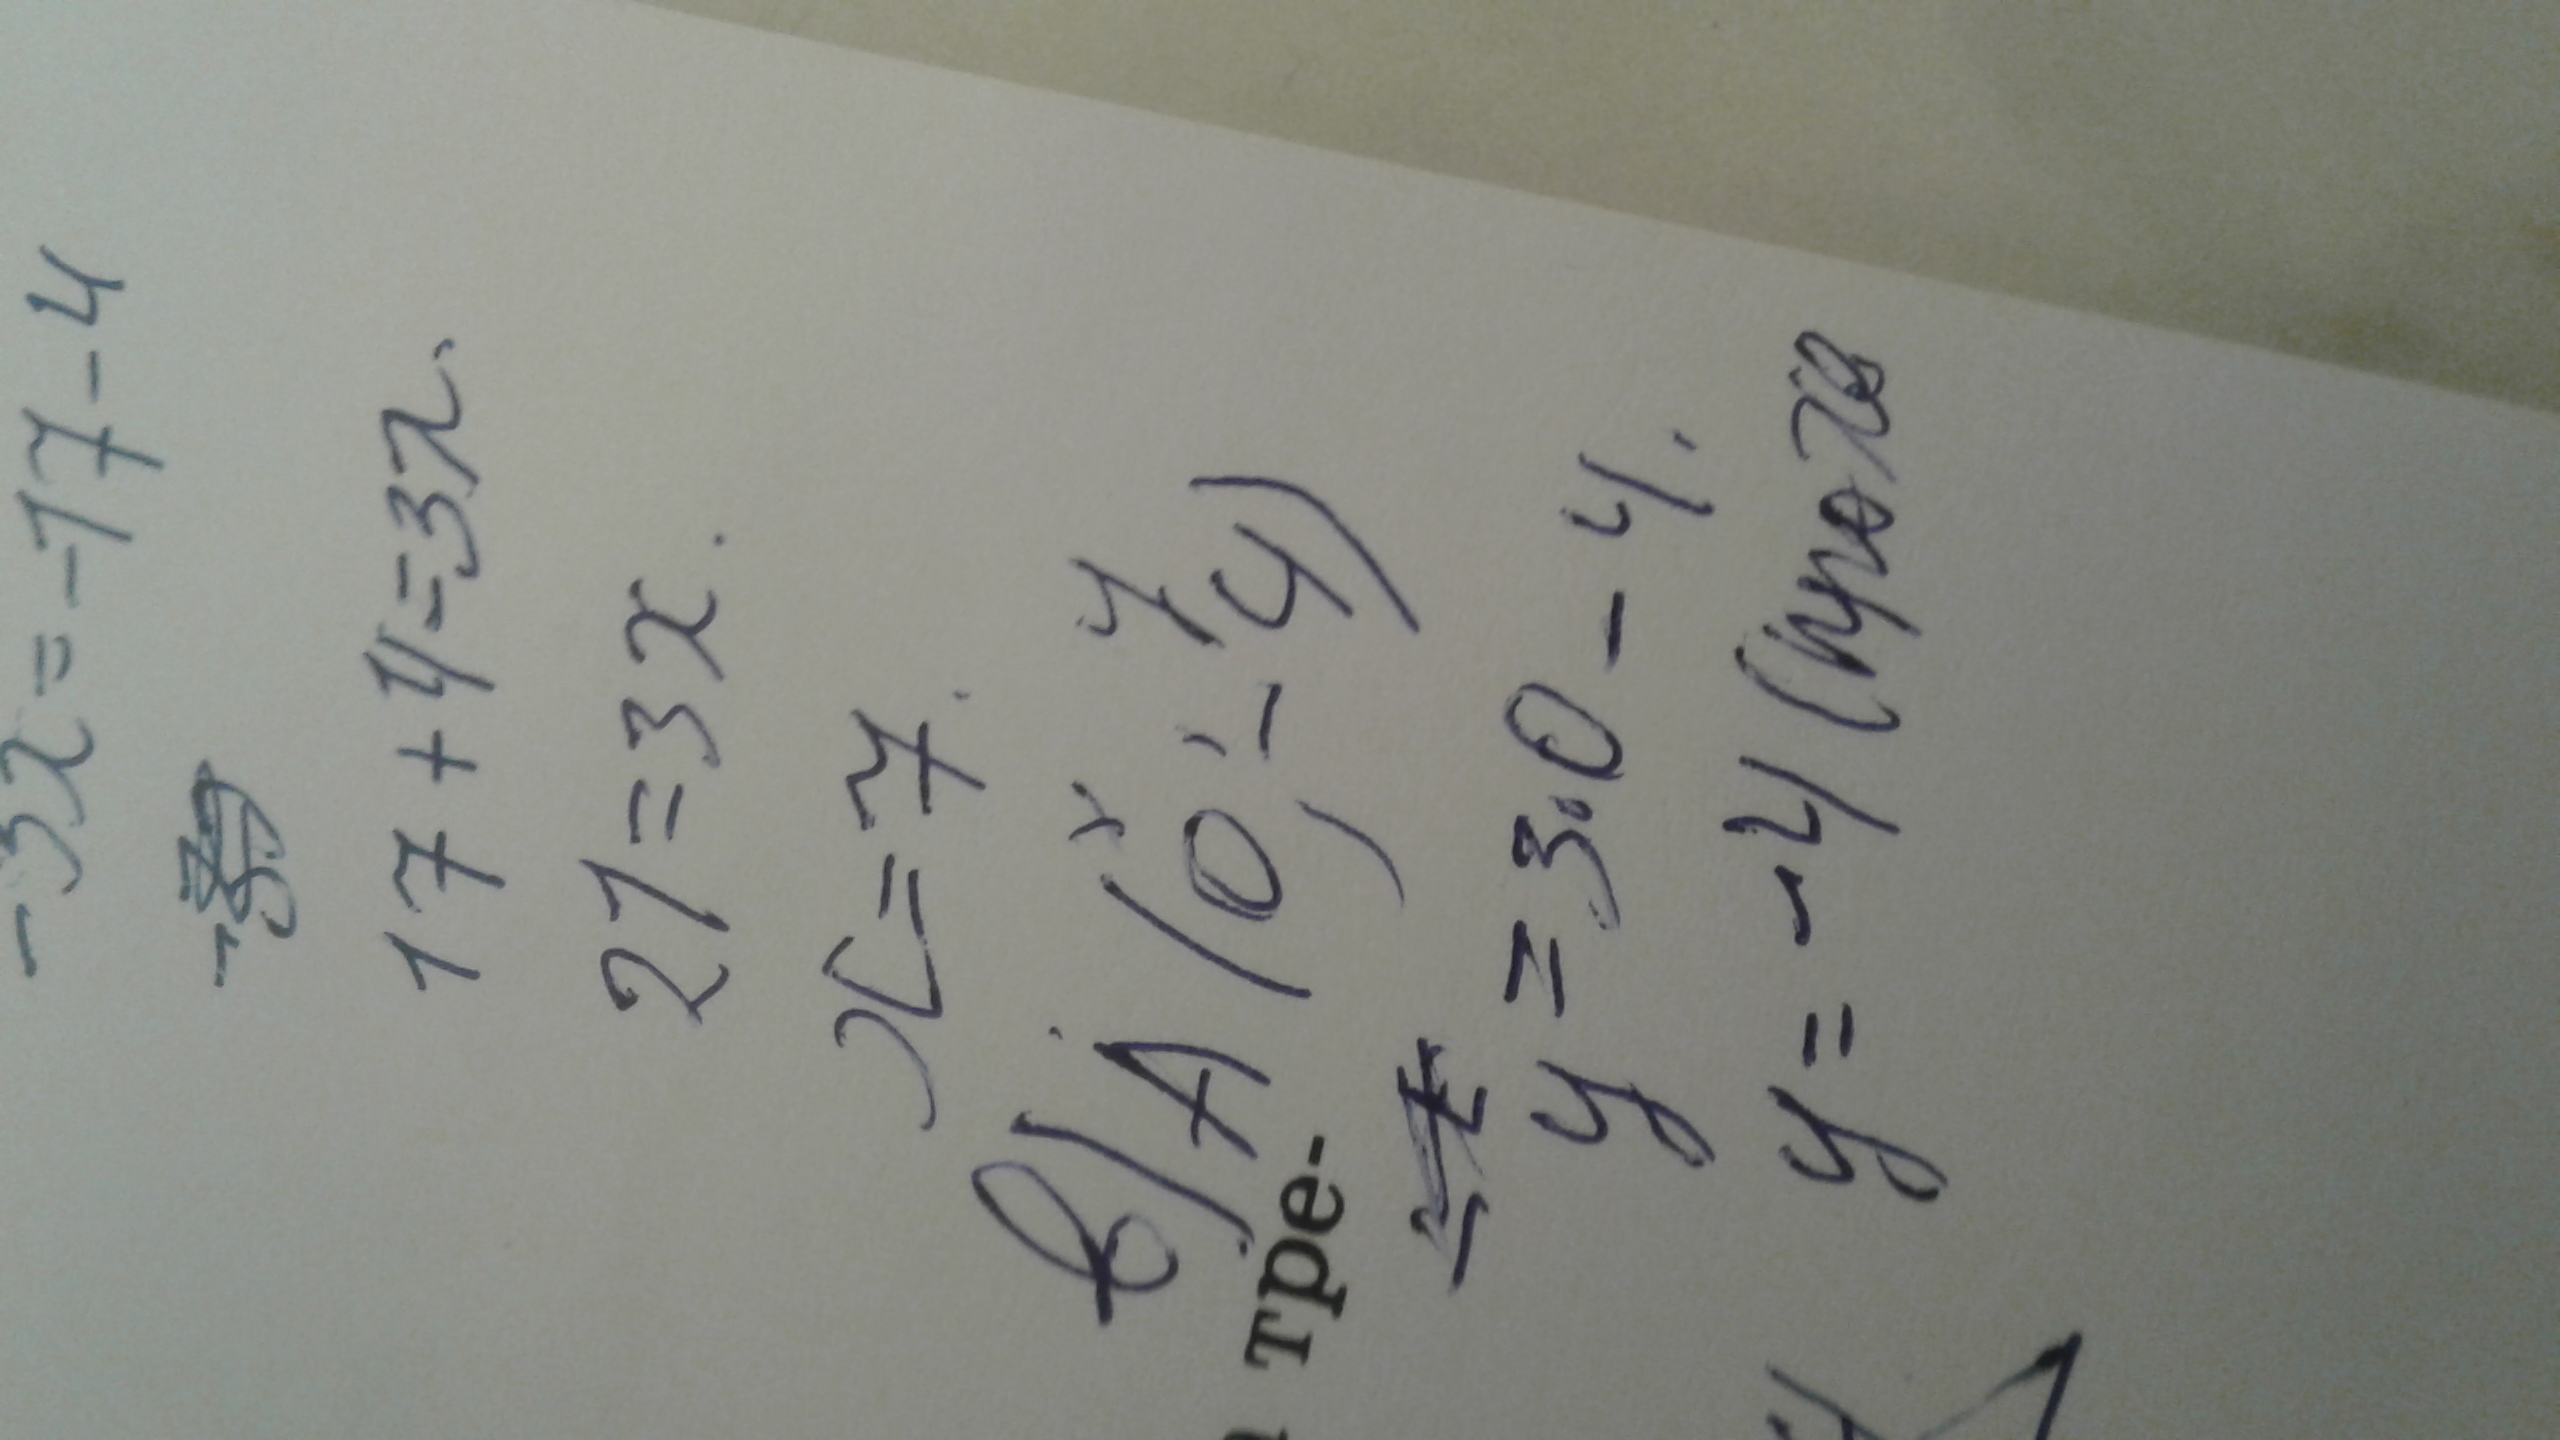 -3x = -17-4
17+4=3x.
21=3x.
x=7.
x y
в) A (0; -4)
тре-
y=3·0-4.
y=-4 (